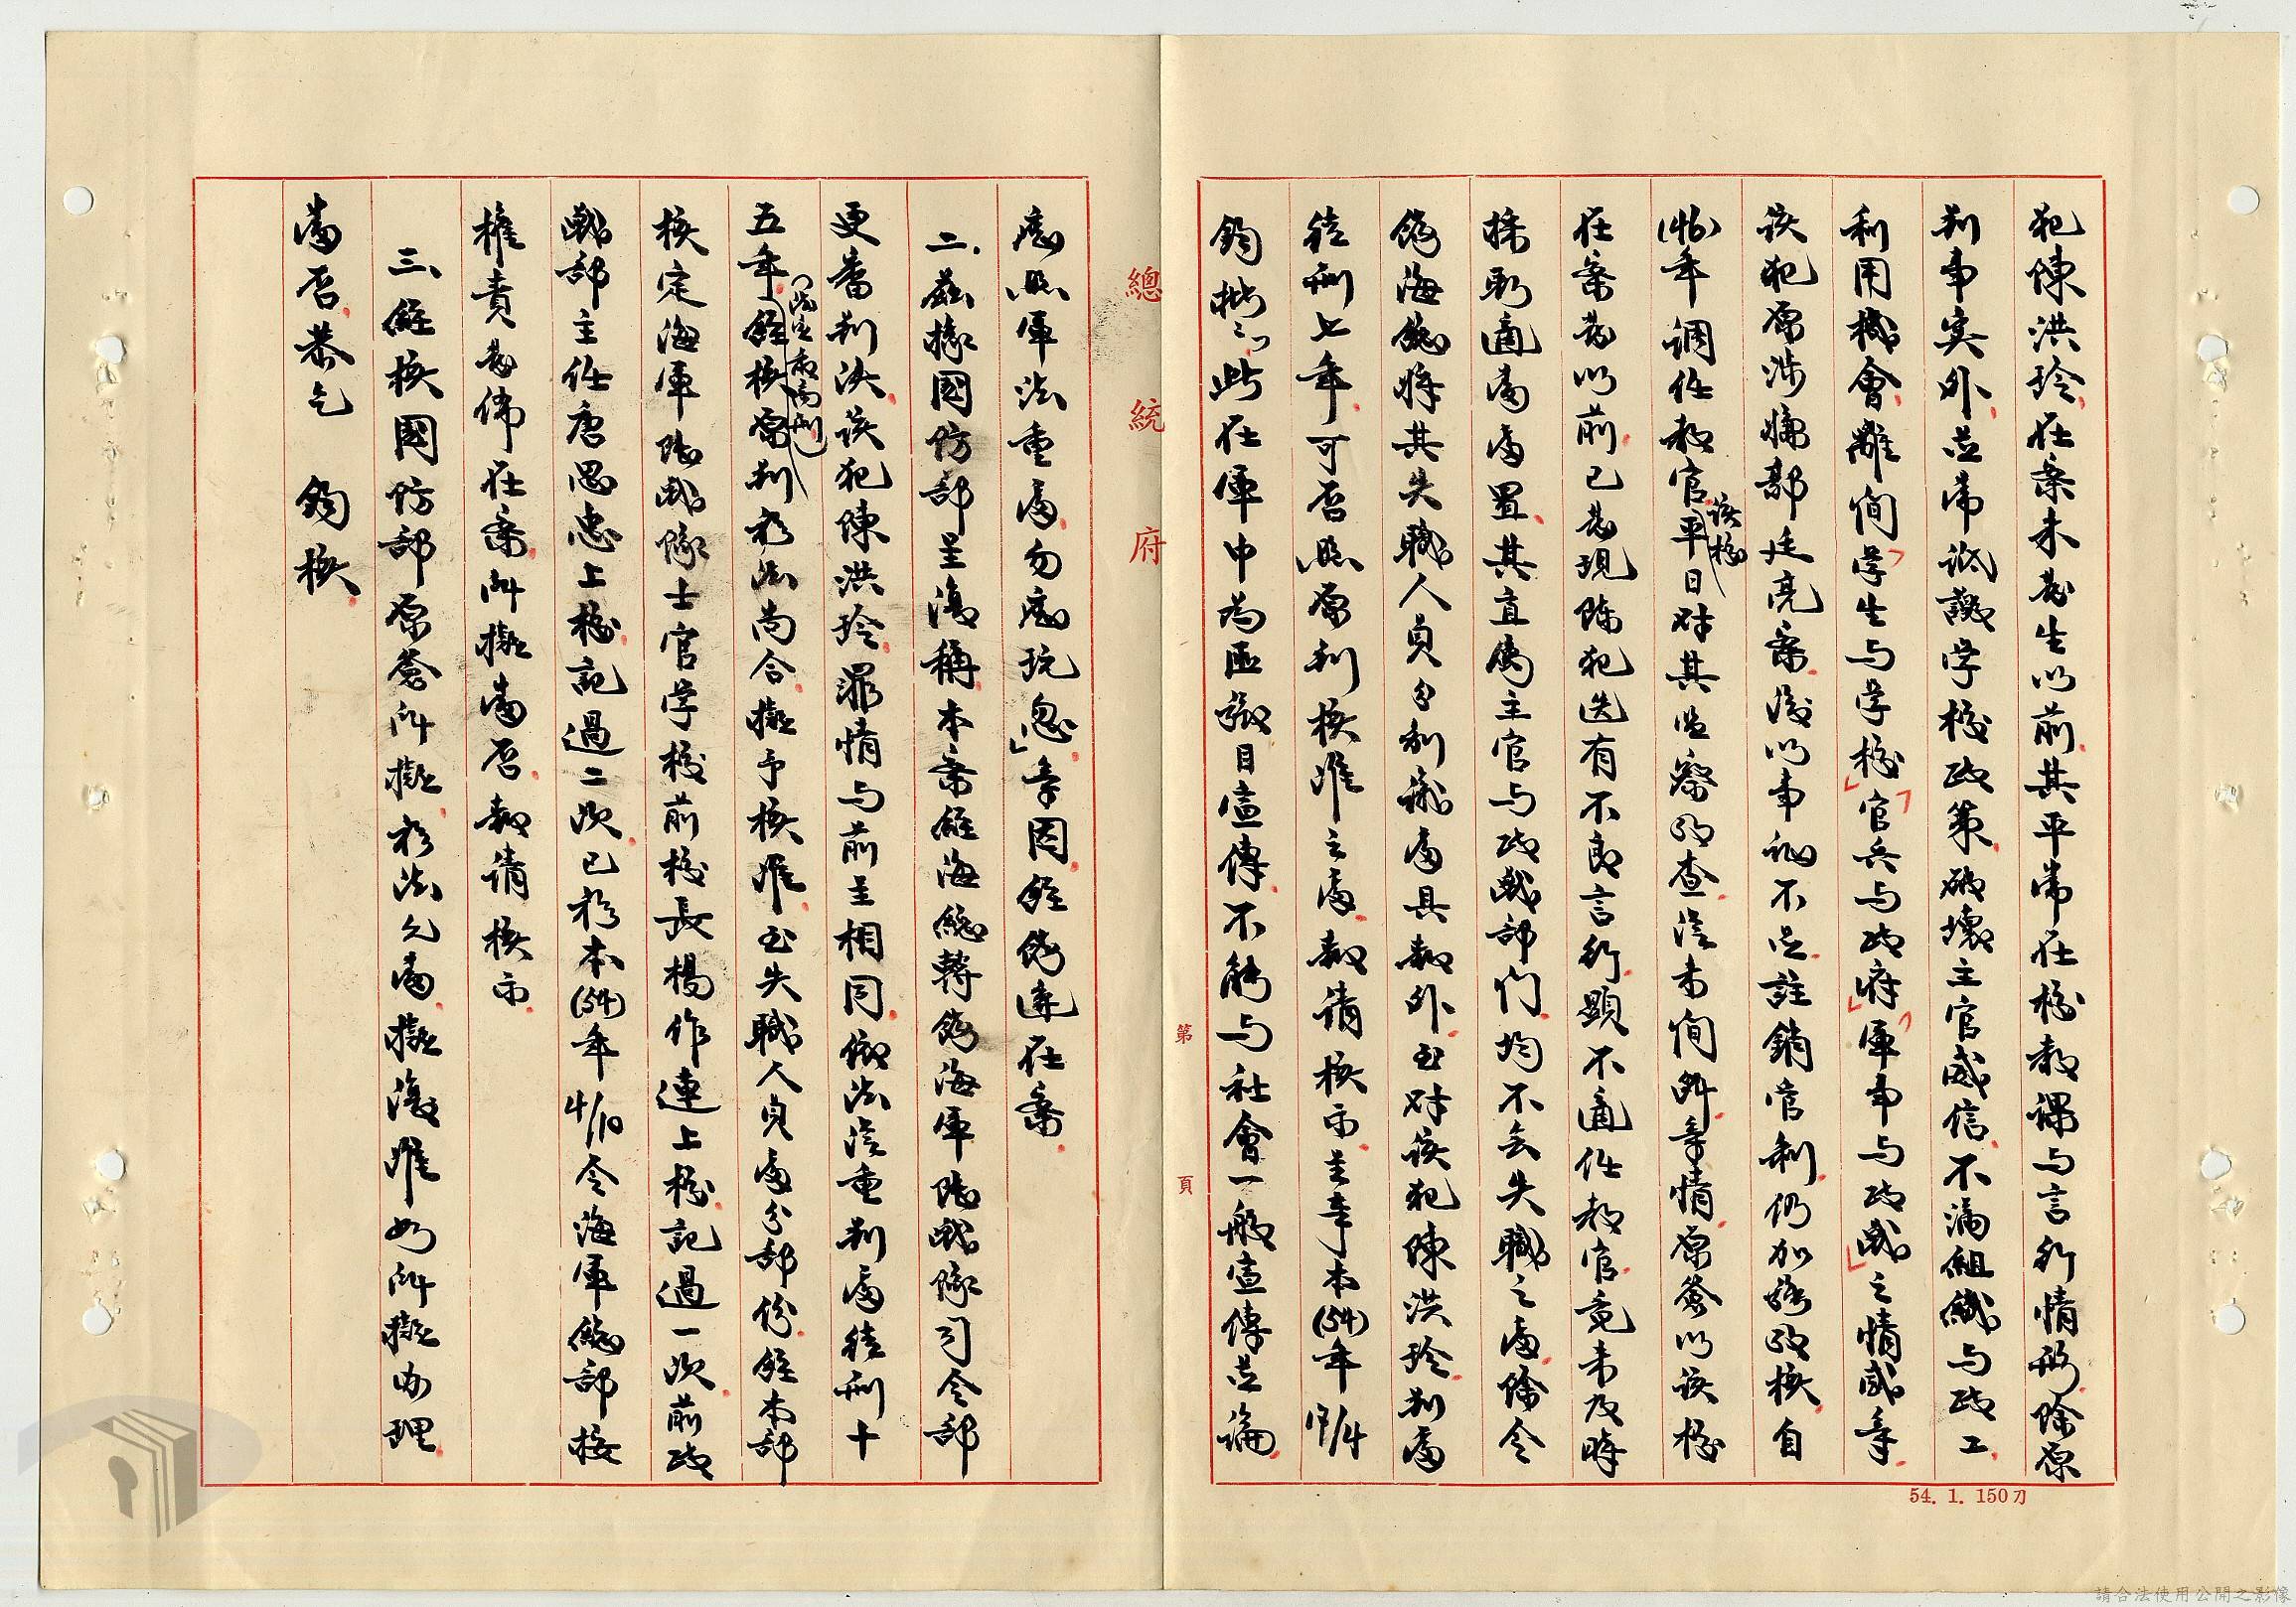 犯陳洪玲在案未發生以前其平常在校教課与言行情形除原
判事实外並常詆譭学校政策破壞主官威信不滿組織与政工
利用機會離間学生与学校官兵与政府軍事与政戰之情感辜
該犯原涉嫌部廷亮案後以事証不足註銷管制仍加考核自
(46)年調任教官該校平日对其監察調查語未間斷辜情原簽以該校
在案發以前已發現陳犯迭有不良言行顯不適任教官竟未及時
採取適當處置其直屬主官与政戰部门均不無失職之處除令
飭海總將其失職人員分別議處具報外至对該犯陳洪玲判處
徒刑七年可否照原判核准之處敬請核示主辜本(54)年
鈞批:「此在軍中為匪張目宣傳不能与社會一般宣傳並論
應照軍法重處勿應玩忽」辜因經飭遵在案
二、茲據國防部呈復稱本案經海總轉飭海軍陸戰隊司令部
更審判決該犯陳洪玲罪情与前呈相同依法從重判處徒刑十
五年(法定最高刑)經核原判於法尚合擬予核准至失職人員處分部份經本部
核定海軍陸戰隊士官学校前校長楊作連上校記過一次前政
戰部主任唐思忠上校記過二次已於本(54)年4/10令海軍總部按
權責發佈在案所擬當否敬請核示
三、經核國防部原簽所擬於法允當擬復准如所擬办理
當否恭乞 鈞核
總統府
第 頁
54. 1. 150刀
請合法使用公開之影像